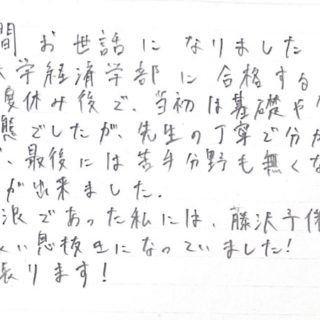 間 お世話になりました
大学経済学部に合格する
夏休み後で、当初は基礎や
態でしたが、先生の丁寧で分か
、最後には苦手分野も無くな
が出来ました.
浪であった私には、藤沢予備
い息抜きになっていました!
張ります!